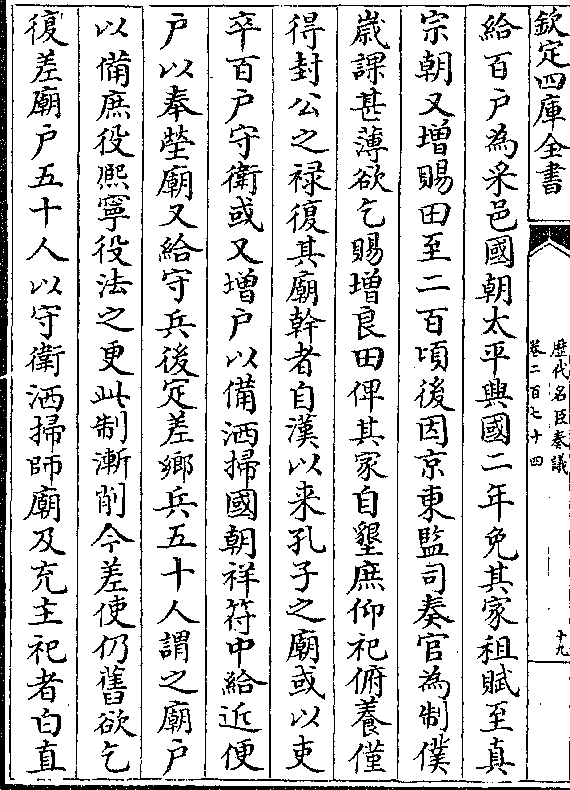 欽定四庫全書
歷代名臣奏議
卷二百七十四
十九
給百戶為采邑國朝太平興國二年免其家租賦至真
宗朝又增賜田至二百頃後因京東監司奏官為制僕
嵗課甚薄欲乞賜增良田俾其家自墾庶仰祀俯養僅
得封公之禄復其廟幹者自漢以来孔子之廟或以吏
卒百戶守衛或又增戶以備洒掃國朝祥符中給近便
戶以奉塋廟又給守兵後定差鄉兵五十人謂之廟戶
以備庶役熈寧役法之更此制漸削今差使仍舊欲乞
復差廟戶五十人以守衛洒掃師廟及充主祀者白直